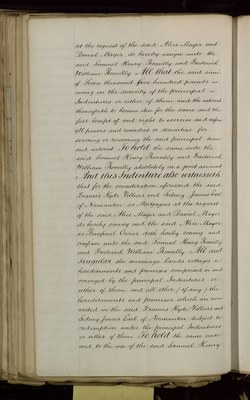 at the request of the said Alice Mayer and
Daniel Mayer do hereby assign unto the
said Samuel Henry Romilly and Frederick
William Romilly All that the said sum
of Seven thousand five hundred pounds re-
maining on the security of the principal
Indentures or either of them and the interest
thenceforth to become due for the same and the
full benefit of and right to exercise and enforce
all powers and remedies or securities for
securing or recovering the said principal sum
and interest To hold the same unto the
said Samuel Henry Romilly and Frederick
William Romilly absolutely in a joint account
And this Indenture also witnesseth
that for the consideration aforesaid the said
Francis Hyde Villiers and Sidney James Earl
of Normanton as Mortgagees at the request
of the said Alice Mayer and Daniel Mayer
do hereby convey and the said Alice Mayer
as Beneficial Owner doth hereby convey and
confirm unto the said Samuel Henry Romilly
and Frederick William Romilly All and
singular the messuages lands cottages
hereditaments and premises comprised in and
conveyed by the principal Indentures or
either of them and all other (if any) the
hereditaments and premises which are now
vested in the said Francis Hyde Villiers and
Sidney James Earl of Normanton subject to
redemption under the principal Indentures
or either of them To hold the same unto
and to the use of the said Samuel Henry